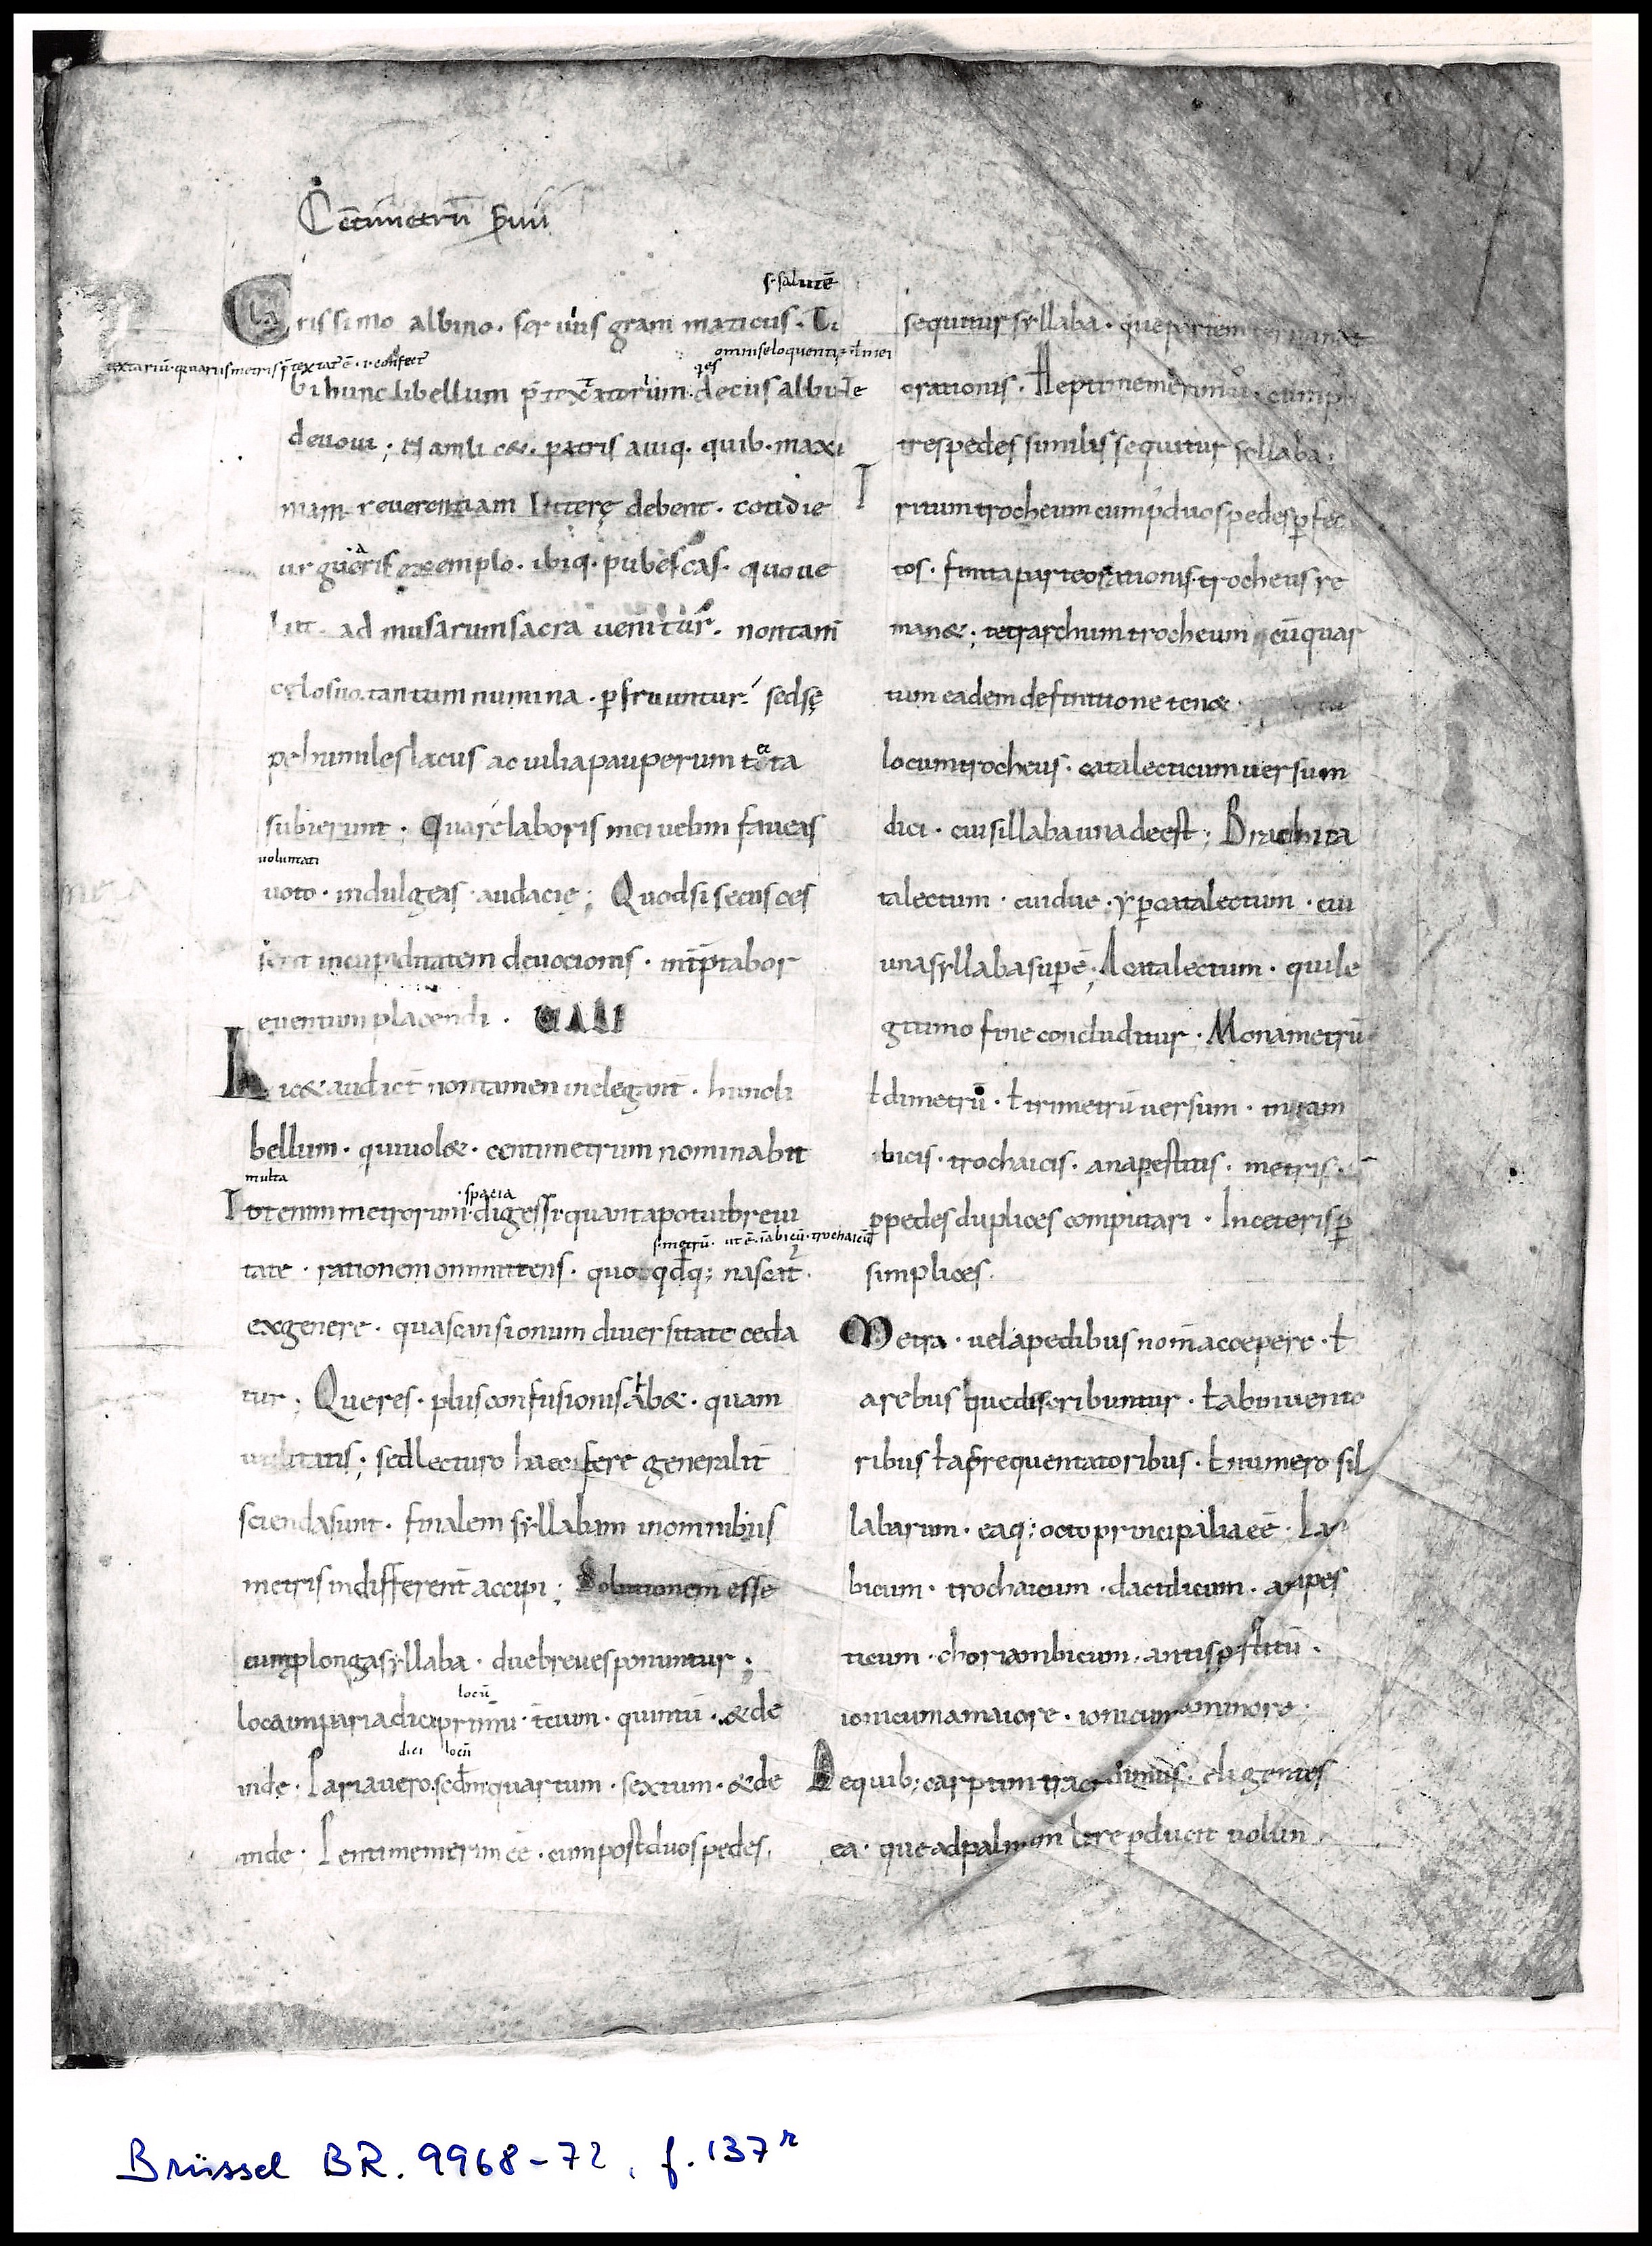 Cētimetrū ꝑuū
s. salutē
Clarissimo albino. seruius grammaticus. Ti
omnis eloquentię. ł mei
bi hunc libellum p̄textatorum. decus albine
deuoui; Namli c&. patris auiq. quib. maxi
mam reuerentiam litterę debent. cotidie
urgueris exemplo. ibiq. pubescas. quo ue
lut. ad musarum sacra uenitur. non tam
ęglosuo tantum numina. ꝑfruuntur. sed sę
pe humiles lacus ac uilia pauperum tecta
subierunt; Quare laboris mei uelim faueas
uoluntati
uoto. indulgeas audacię; Quod si secus ces
serit in cupiditatem deuocionis. int̄p̄tabor
euentum placendi. UALE
Hic & audiet̄ non tamen inelegant̄. hunc li
bellum. qui uol&. centimetrum nominabit
multa
spacia
Tot enim metrorum digessi quanta potui breui
s. metrū. ut ē. iābicū. trochaicū
tate. rationem omittens. quo qdq; nascit̄.
ex genere. qua scansionum diuersitate ceda
tur; Que res. plus confusionis hab&. quam
utilitatis; sed lecturo hęc fere generalit̄
scienda sunt. finalem syllabam in omnibus
metris indifferent̄ accipi; Solutionem esse
cum p longa syllaba. due breues ponuntur;
locū
loca imparia dici primū. t̄cium. quintū. & de
dici locū
inde. Paria uero. sedm quartum. sextum. & de
inde. Pentimemerim ēē. cum post duos pedes.
sequitur syllaba. que partem terminat
orationis. Heptimemerim. cum p
tres pedes similis sequitur sellaba;
Tritum trocheum cum p duos pedes ꝑfec
tos. finita parte orationis. trocheus re
man&; tetrarchum trocheum cū quar
tum eadem definitione ten&
locum trocheus. catalecticum uersum
dici. cui sillaba una deest; Brachica
talectum. cui due. yꝑcatalectum. cui
una syllaba suꝑē; Acatalectum. qui le
gitimo fine concluditur. Monametrū
ł dimetrū. ł trimetrū uersum. in iam
bicis. trochaicis. anapestitis. metris.
ꝑ pedes duplices computari. In ceteris ꝑ
simplices.
Metra. uel a pedibus nom̄ accepere. ł
a rebus que discribuntur. ł ab inuento
ribus ł a frequentatoribus. ł numero sil
labarum. eaq; octo principalia eē. Ia
bicum. trochaicum. dactilicum. anapes
ticum. choriambicum. antispastitū.
ionicum a maiore. ionicum a minore.
De quib; carptim tractauimus. eligentes
ea. que ad palmam lt̄re ꝑducit uolun
Brüssel BR. 9968-72, f. 137r